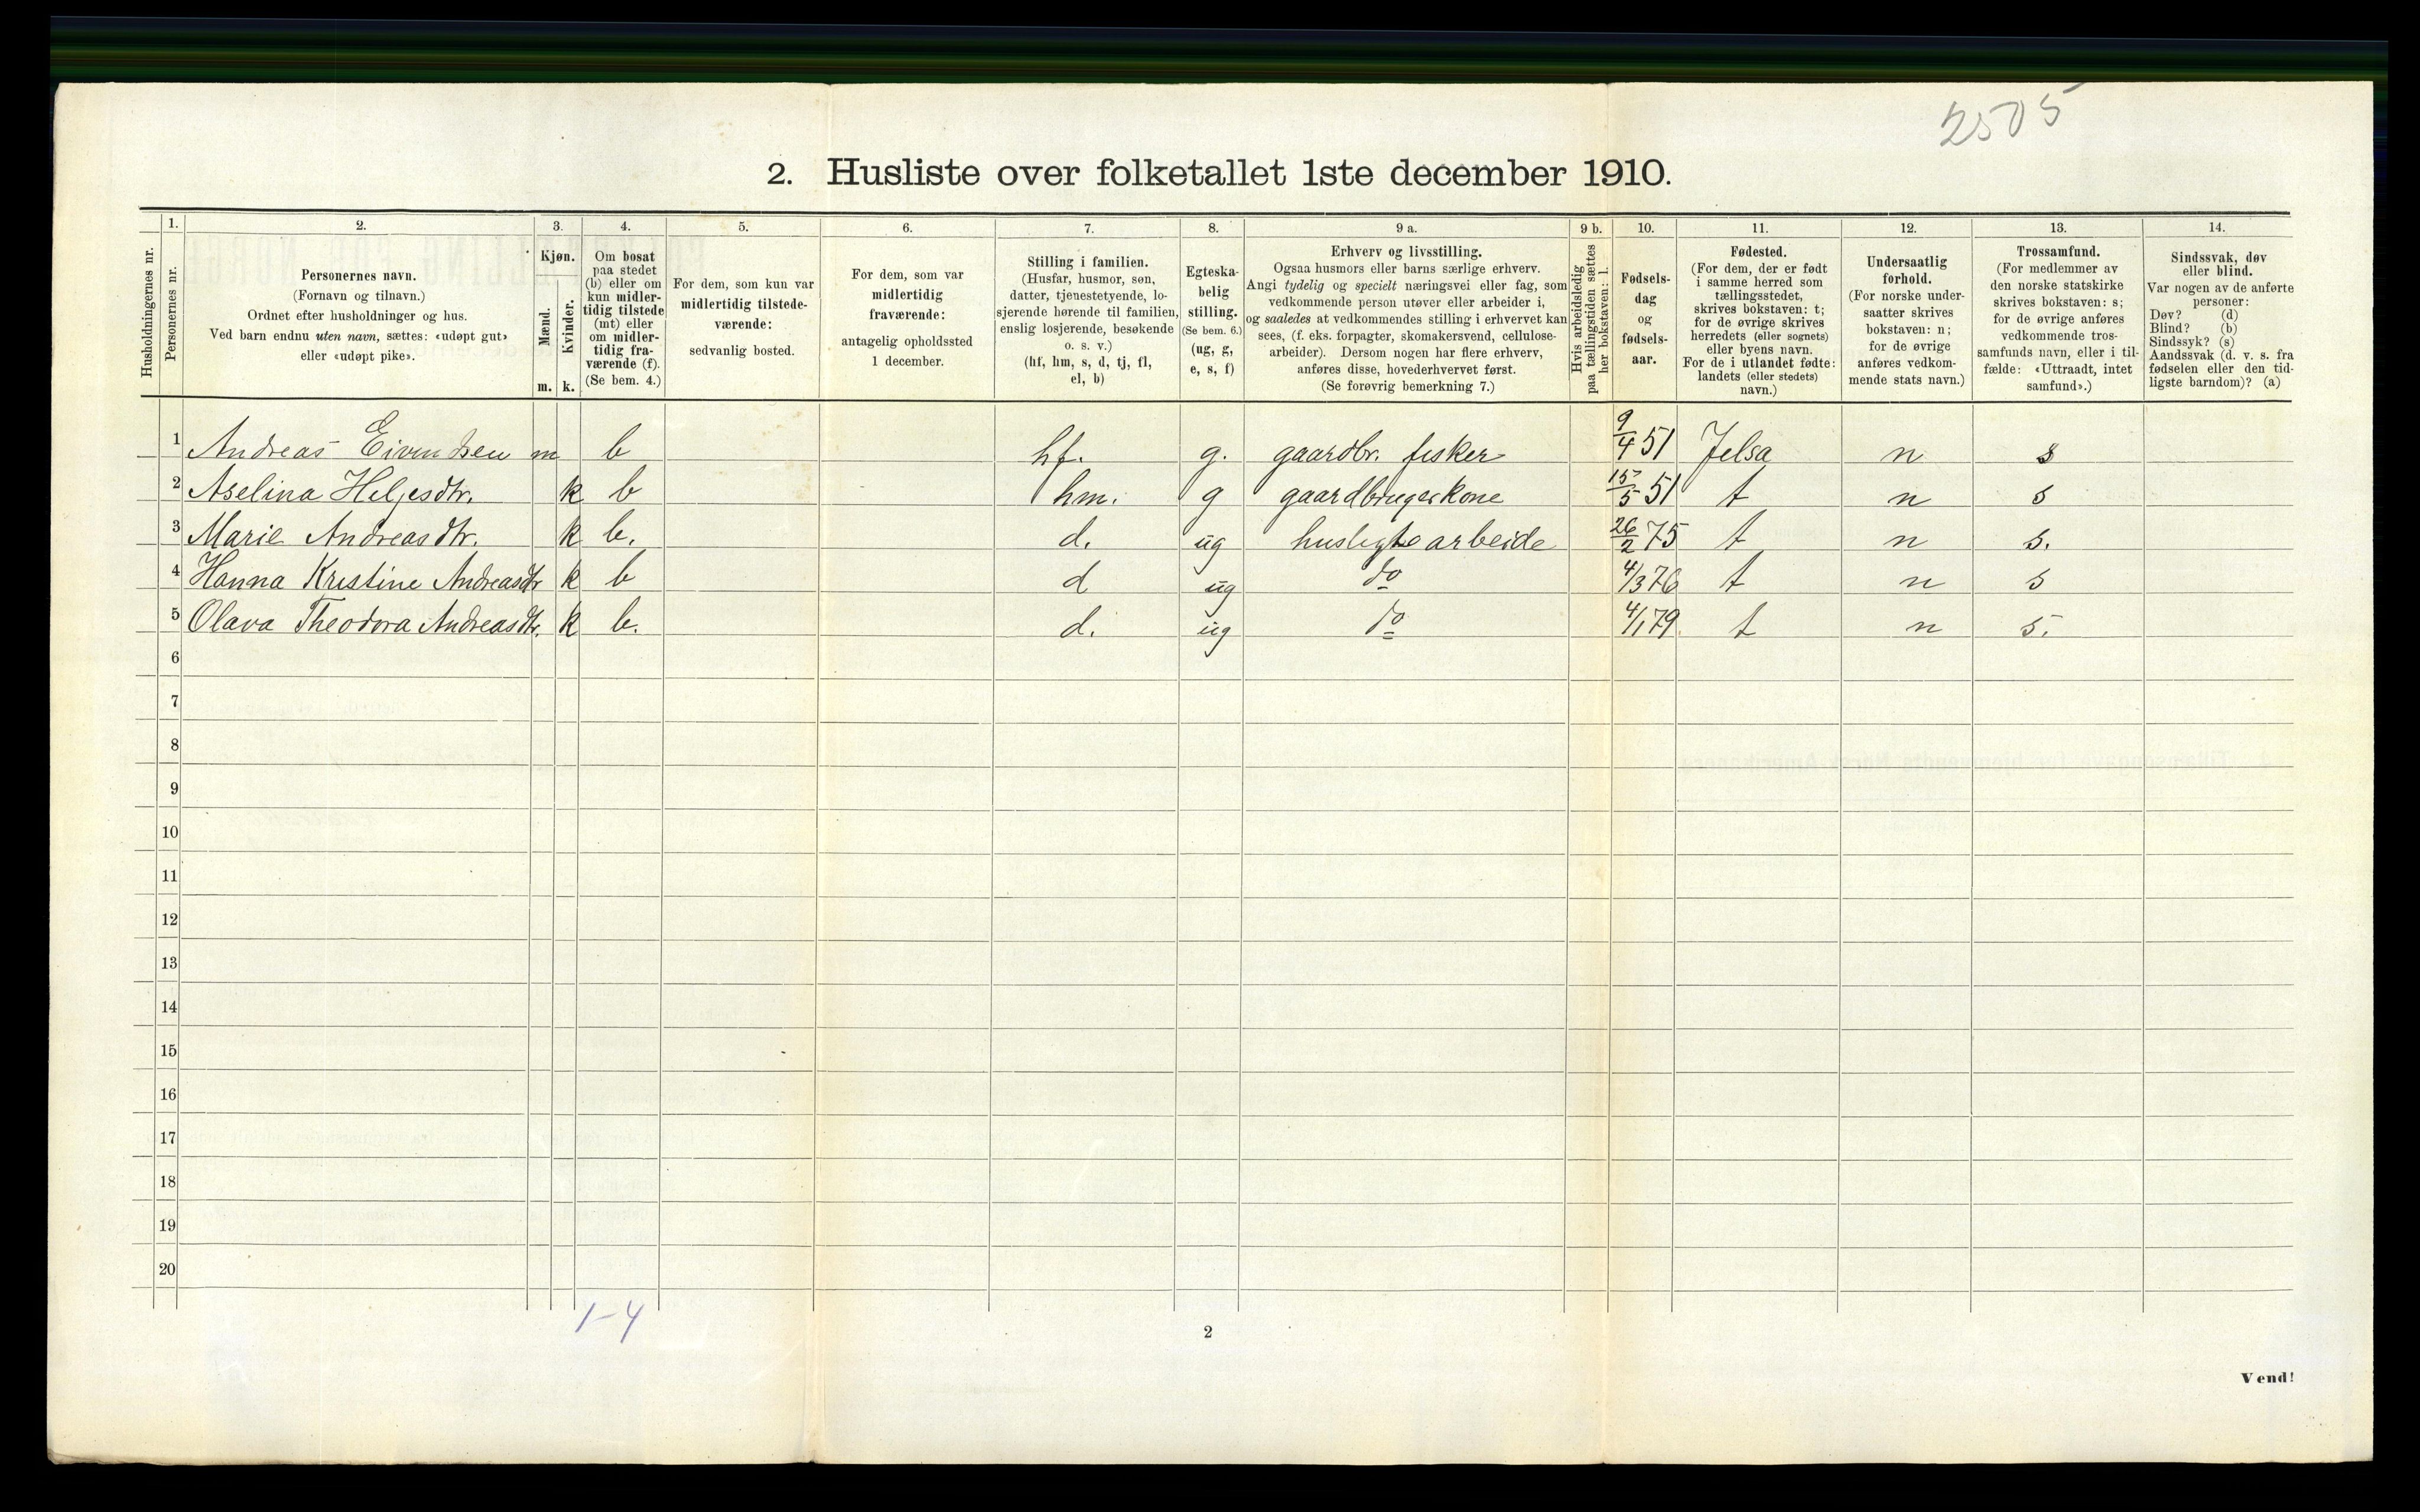 2505
2. Husliste over folketallet 1ste december 1910.
Husholdningernes nr.
1.
Personernes nr.
2.
Personernes navn.
(Fornavn og tilnavn.)
Ordnet efter husholdninger og hus.
Ved barn endnu uten navn, sættes: «udøpt gut»
eller «udøpt pike».
3.
Kjøn.
Mænd.
Kvinder.
m. k.
4.
Om bosat
paa stedet
(b) eller om
kun midler-
tidig tilstede
(mt) eller
om midler-
tidig fra-
værende (f).
(Se bem. 4.)
5.
For dem, som kun var
midlertidig tilstede-
værende:
sedvanlig bosted.
6.
For dem, som var
midlertidig
fraværende:
antagelig opholdssted
1 december.
7.
Stilling i familien.
(Husfar, husmor, søn,
datter, tjenestetyende, lo-
sjerende hørende til familien,
enslig losjerende, besøkende
o. s. v.)
(hf, hm, s, d, tj, fl,
el, b)
8.
Egteska-
belig
stilling.
(Se bem. 6.)
(ug, g,
e, s, f)
9 a.
Erhverv og livsstilling.
Ogsaa husmors eller barns særlige erhverv.
Angi tydelig og specielt næringsvei eller fag, som
vedkommende person utøver eller arbeider i,
og saaledes at vedkommendes stilling i erhvervet kan
sees, (f. eks. forpagter, skomakersvend, cellulose-
arbeider). Dersom nogen har flere erhverv,
anføres disse, hovederhvervet først.
(Se forøvrig bemerkning 7.)
9 b.
Hvis arbeidsledig
paa tællingstiden sættes
her bokstaven: l.
10.
Fødsels-
dag
og
fødsels-
aar.
11.
Fødested.
(For dem, der er født
i samme herred som
tællingsstedet,
skrives bokstaven: t;
for de øvrige skrives
herredets (eller sognets)
eller byens navn.
For de i utlandet fødte:
landets (eller stedets)
navn.)
12.
Undersaatlig
forhold.
(For norske under-
saatter skrives
bokstaven: n;
for de øvrige
anføres vedkom-
mende stats navn.)
13.
Trossamfund.
(For medlemmer av
den norske statskirke
skrives bokstaven: s;
for de øvrige anføres
vedkommende tros-
samfunds navn, eller i til-
fælde: «Uttraadt, intet
samfund».)
14.
Sindssvak, døv
eller blind.
Var nogen av de anførte
personer:
Døv? (d)
Blind? (b)
Sindssyk? (s)
Aandssvak (d. v. s. fra
fødselen eller den tid-
ligste barndom)? (a)
1 Andreas Eivindsen m b hf. g. gaardbr. fisker 9/4 51 Jelsa n s
2 Aselina Helgesdtr. k b hm. g gaardbrugerkone 15/5 51 t n s
3 Marie Andreasdtr. k b. d. ug husligte arbeide 26/2 75 t n s.
4 Hanna Kristine Andreasdtr k b d ug do 4/3 76 t n s
5 Olava Theodora Andreasdtr. k b. d. ug do 4/1 79. t n s.
6
7
8
9
10
11
12
13
14
15
16
17
18
19
20
1-4
2
Vend!